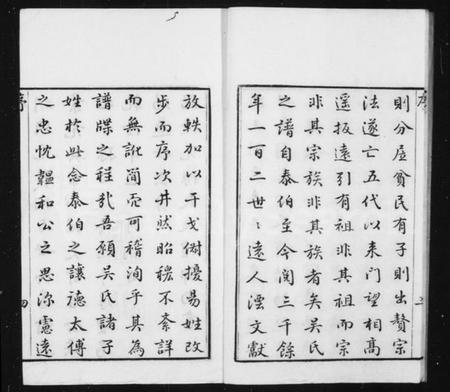 則分居貧民有子則出贅宗
法遂亡五代以来門望相高
遥扳遠引有祖非其祖而宗
非其宗族非其族者矣吴氏
之譜自泰伯至今閲三千餘
年一百二世世遠人湮文獻
放軼加以干戈俶擾易姓改
步而序次井然昭穆不紊詳
而無訛簡而可稽洵乎其為
譜牒之程哉吾願吴氏諸子
姓於此念泰伯之讓德太傅
之忠忱韞和公之思深慮遠
序